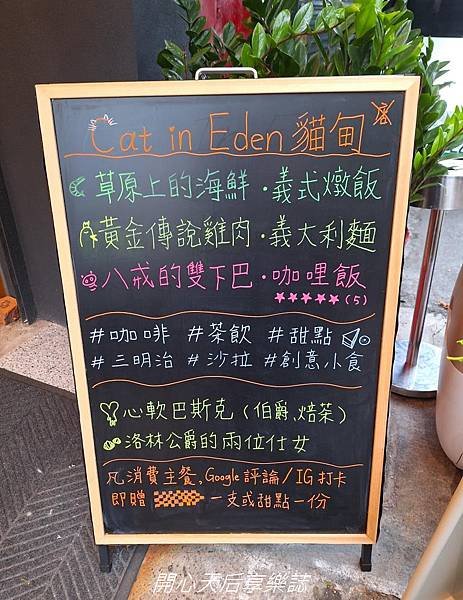 Cat in Eden 貓甸
草原上的海鮮・義式燉飯
黃金傳說雞肉・義大利麵
八戒的雙下巴・咖哩飯
★★★★★(5)
#咖啡 #茶飲 #甜點
#三明治 #沙拉 #創意小食
心軟巴斯克(伯爵,焙茶)
洛林公爵的兩位仕女
凡消費主餐,Google評論/IG打卡
即贈 一支或甜點一份
開心天后享樂誌